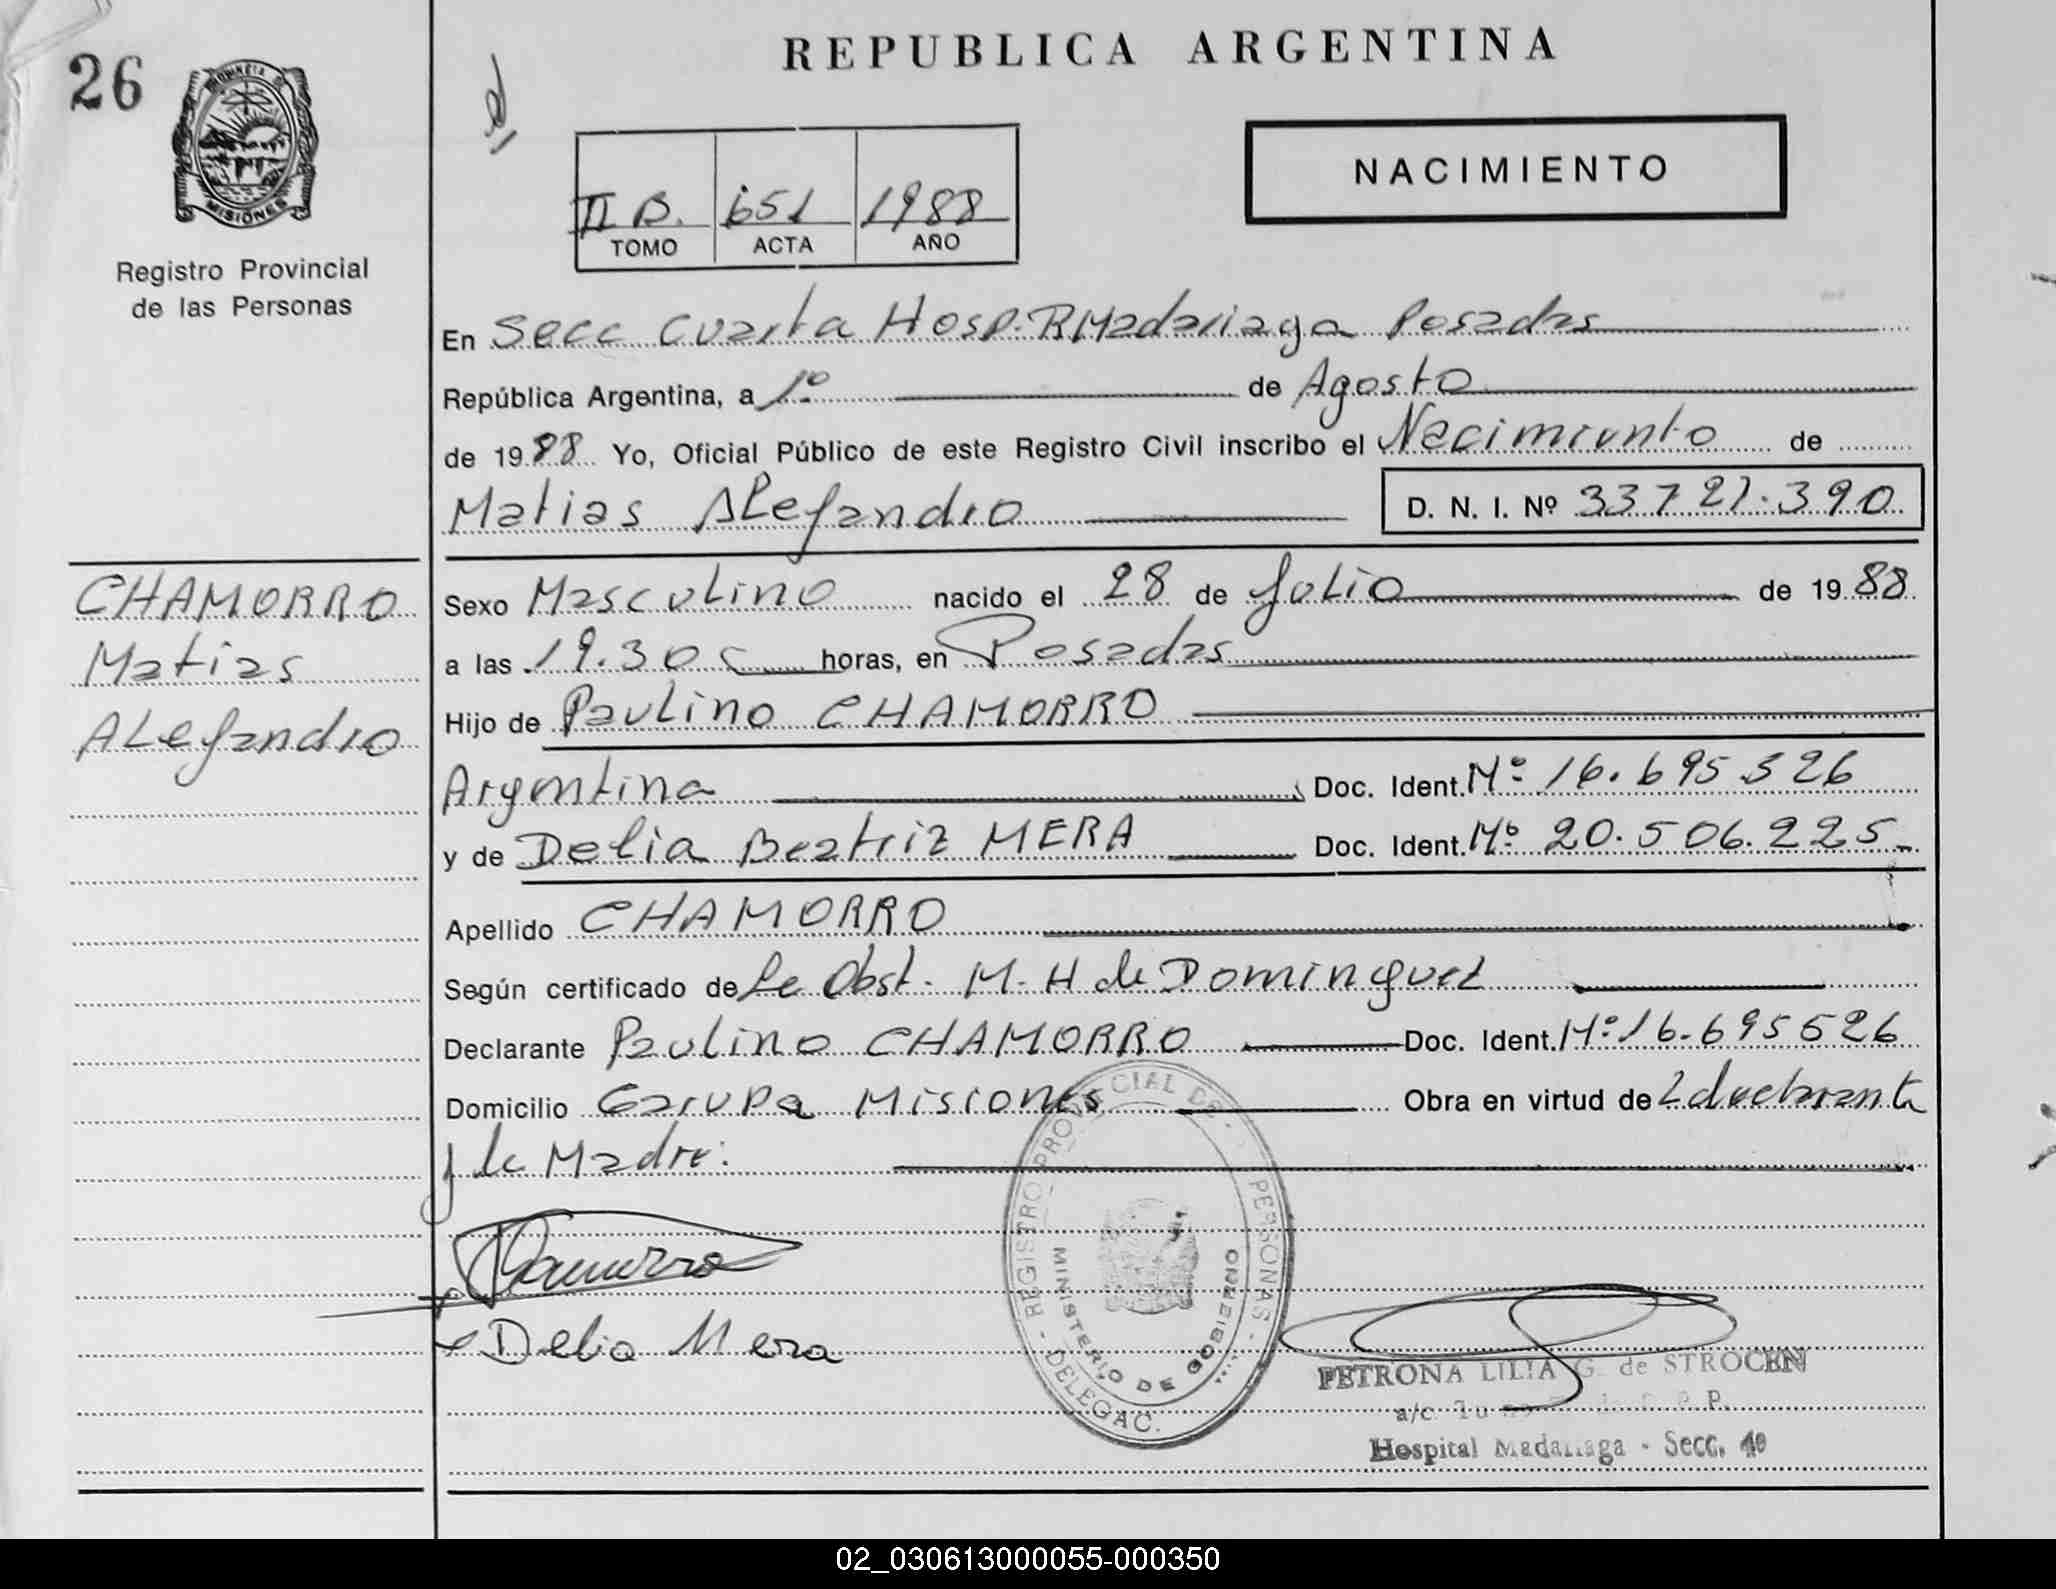 REPUBLICA ARGENTINA
26
PROVINCIA DE
MISIONES
Registro Provincial
de las Personas
NACIMIENTO
II B. 651 1988
TOMO ACTA AÑO
En Secc Cuarta Hosp. R Madariaga Posadas
República Argentina, a 1º de Agosto
de 1988 Yo, Oficial Público de este Registro Civil inscribo el Nacimiento de
Matias Alejandro D. N. I. Nº 33.727.390
CHAMORRO
Matias
Alejandro
Sexo Masculino nacido el 28 de Julio de 1988
a las 19.30 horas, en Posadas
Hijo de Paulino CHAMORRO
Argentina Doc. Ident. Mº 16.695.526
y de Delia Beatriz MERA Doc. Ident. Mº 20.506.225
Apellido CHAMORRO
Según certificado de la Obst. M. H de Dominguez
Declarante Paulino CHAMORRO Doc. Ident. Mº 16.695526
Domicilio Garupa Misiones Obra en virtud de
y la Madre:
Chamorro
Delia Mera
REGISTRO PROVINCIAL DE PERSONAS - DELEGAC.
MINISTERIO DE GOBIERNO
PETRONA LILIA G. de STROCEN
a/c
Hospital Madariaga - Secc. 4º
02_030613000055-000350